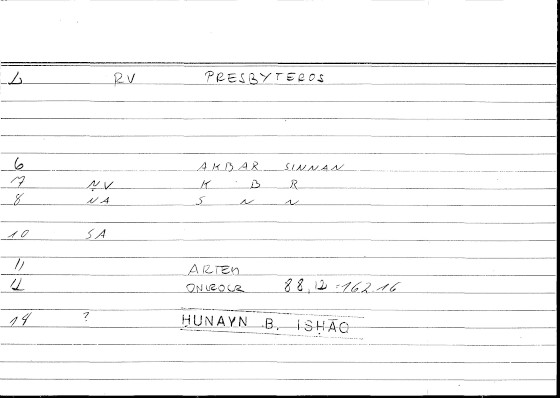 RV PRESBYTEROS
6 AKBAR SINNAN
7 NV K B R
8 NA S N N
10 SA
11 ARTEM
88, 12-162.16
14 ? HUNAYN B. ISḤĀQ